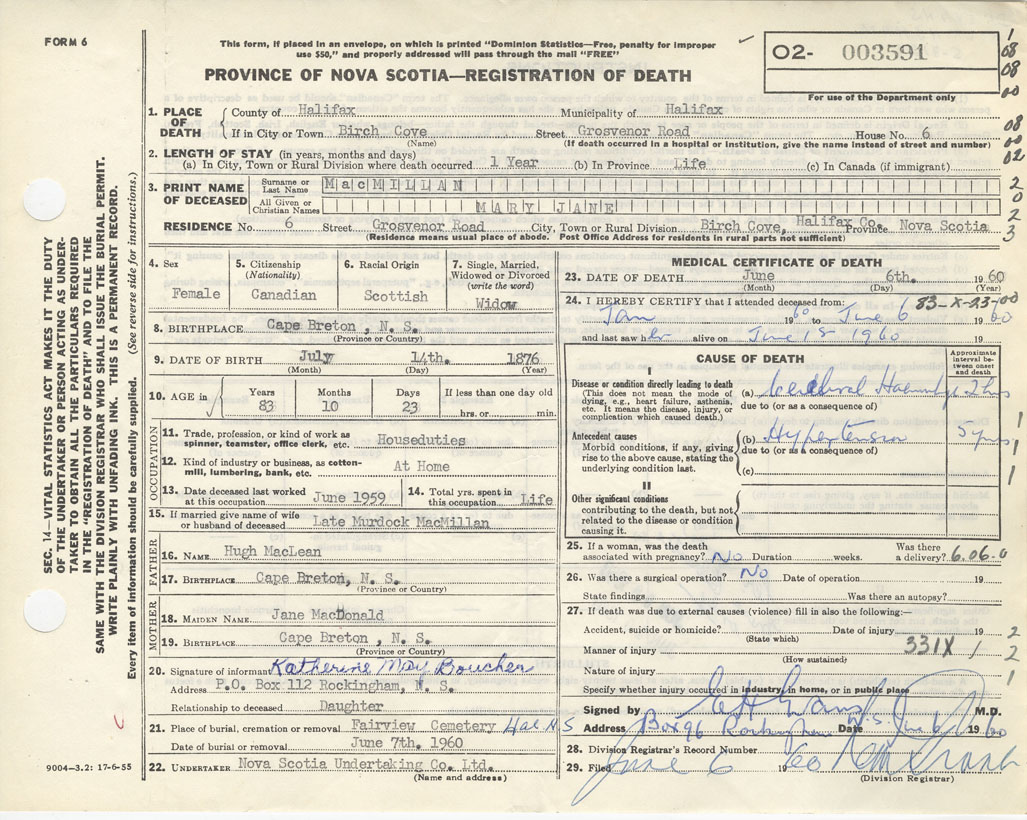 FORM 6
This form, if placed in an envelope, on which is printed "Dominion Statistics—Free, penalty for improper
use $50," and properly addressed will pass through the mail "FREE"
O2- 003591
For use of the Department only
PROVINCE OF NOVA SCOTIA—REGISTRATION OF DEATH
1. PLACE OF DEATH
County of Halifax Municipality of Halifax
If in City or Town Birch Cove Street Grosvenor Road House No. 6
(Name) (If death occurred in a hospital or institution, give the name instead of street and number)
2. LENGTH OF STAY (in years, months and days)
(a) In City, Town or Rural Division where death occurred 1 Year (b) In Province Life (c) In Canada (if immigrant)
3. PRINT NAME OF DECEASED
Surname or Last Name MacMILLAN
All Given or Christian Names MARY JANE
RESIDENCE No. 6 Street Grosvenor Road City, Town or Rural Division Birch Cove, Halifax Co. Province Nova Scotia
(Residence means usual place of abode. Post Office Address for residents in rural parts not sufficient)
4. Sex Female
5. Citizenship (Nationality) Canadian
6. Racial Origin Scottish
7. Single, Married, Widowed or Divorced (write the word) Widow
8. BIRTHPLACE Cape Breton , N. S.
(Province or Country)
9. DATE OF BIRTH July 14th. 1876
(Month) (Day) (Year)
10. AGE in Years 83 Months 10 Days 23 If less than one day old hrs. or min.
OCCUPATION
11. Trade, profession, or kind of work as spinner, teamster, office clerk, etc. Houseduties
12. Kind of industry or business, as cotton-mill, lumbering, bank, etc. At Home
13. Date deceased last worked at this occupation June 1959
14. Total yrs. spent in this occupation Life
15. If married give name of wife or husband of deceased Late Murdock MacMillan
FATHER
16. NAME Hugh MacLean
17. BIRTHPLACE Cape Breton, N. S.
(Province or Country)
MOTHER
18. MAIDEN NAME Jane MacDonald
19. BIRTHPLACE Cape Breton , N. S.
(Province or Country)
20. Signature of informant Katherine May Boucher
Address P.O. Box 112 Rockingham, N. S.
Relationship to deceased Daughter
21. Place of burial, cremation or removal Fairview Cemetery Hal N S
Date of burial or removal June 7th. 1960
22. UNDERTAKER Nova Scotia Undertaking Co. Ltd.
(Name and address)
MEDICAL CERTIFICATE OF DEATH
23. DATE OF DEATH June 6th. 1960
(Month) (Day) (Year)
24. I HEREBY CERTIFY that I attended deceased from: 83-X-23-00
Jan 1960 to June 6 1960
and last saw her alive on June 1st 1960 19
CAUSE OF DEATH
Approximate interval between onset and death
I
Disease or condition directly leading to death
(This does not mean the mode of dying, e.g., heart failure, asthenia, etc. It means the disease, injury, or complication which caused death.)
(a) Cerebral Haemhge 2 hrs
due to (or as a consequence of)
Antecedent causes
Morbid conditions, if any, giving rise to the above cause, stating the underlying condition last.
(b) Hypertension 5 yrs
due to (or as a consequence of)
(c)
II
Other significant conditions
contributing to the death, but not related to the disease or condition causing it.
25. If a woman, was the death associated with pregnancy? No Duration weeks. Was there a delivery? 6.06.0
26. Was there a surgical operation? No Date of operation 19
State findings Was there an autopsy?
27. If death was due to external causes (violence) fill in also the following:—
Accident, suicide or homicide? Date of injury 19
(State which)
Manner of injury 331X
(How sustained)
Nature of injury
Specify whether injury occurred in industry, in home, or in public place
Signed by M.D.
Address Box 96 Rockingham N.S Date June 6 1960
28. Division Registrar's Record Number
29. Filed June 6 1960
(Division Registrar)
SEC. 14—VITAL STATISTICS ACT MAKES IT THE DUTY
OF THE UNDERTAKER OR PERSON ACTING AS UNDER-
TAKER TO OBTAIN ALL THE PARTICULARS REQUIRED
IN THE "REGISTRATION OF DEATH" AND TO FILE THE
SAME WITH THE DIVISION REGISTRAR WHO SHALL ISSUE THE BURIAL PERMIT.
WRITE PLAINLY WITH UNFADING INK. THIS IS A PERMANENT RECORD.
Every item of information should be carefully supplied. (See reverse side for instructions.)
9004—3.2: 17-6-55
1
08
08
00
08
00
02
2
0
2
3
1
1
1
2
1 2
1